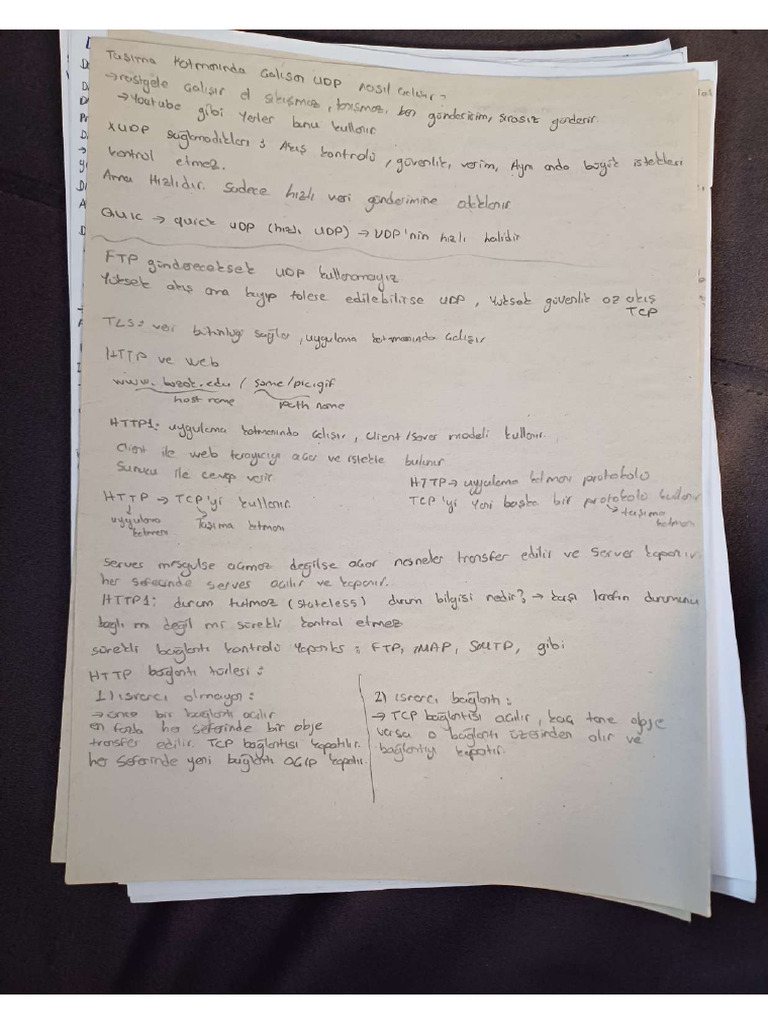 Taşıma Katmanında Çalışan UDP nasıl çalışır?
→ rastgele çalışır el sıkışmaz, ben gönderirim, sırasız gönderir.
→ Youtube gibi yerler bunu kullanır
X UDP sağlamadıkları ; Akış kontrolü, güvenlik, verim, Aynı anda büyük istekleri
kontrol etmez.
Ama Hızlıdır. Sadece hızlı veri gönderimine odaklanır
QUIC → quick UDP (hızlı UDP) → UDP'nin hızlı halidir
FTP göndereceksek UDP kullanamayız
Yüksek akış ama kayıp tolere edilebilirse UDP, Yüksek güvenlik az akış
TCP
TLS: veri bütünlüğü sağlar, uygulama katmanında çalışır
HTTP ve web
www.bozok.edu / some/pic.gif
host name
path name
HTTP1: uygulama katmanında çalışır, client/server modeli kullanır.
Client ile web tarayıcıyı açar ve istekte bulunur
Sunucu ile cevap verir.
HTTP → uygulama katmanı protokolü
TCP'yi yani başka bir protokolü kullanır
→ taşıma
katmanı
HTTP → TCP'yi kullanır.
uygulama
katmanı
Taşıma katmanı
server meşgulse açmaz değilse açar nesneler transfer edilir ve server kapanır.
her seferinde server açılır ve kapanır.
HTTP1: durum tutmaz (stateless) durum bilgisi nedir? → karşı tarafın durumunu
bağlı mı değil mi sürekli kontrol etmez
sürekli bağlantı kontrolü yapanlar : FTP, IMAP, SMTP, gibi
HTTP bağlantı türleri :
1) ısrarcı olmayan :
→ önce bir bağlantı açılır
en fazla her seferinde bir obje
transfer edilir. TCP bağlantısı kapatılır.
her seferinde yeni bağlantı açıp kapatır.
2) ısrarcı bağlantı :
→ TCP bağlantısı açılır, kaç tane obje
varsa o bağlantı üzerinden alır ve
bağlantıyı kapatır.